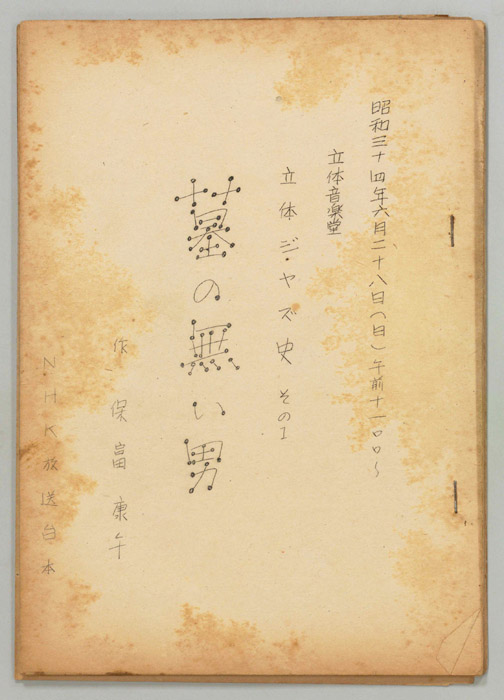 昭和三十四年六月二十八日(日)午前十一〇〇〜
立体音楽堂
立体ジャズ史 その1
墓の無い男
作 保富康午
NHK放送台本